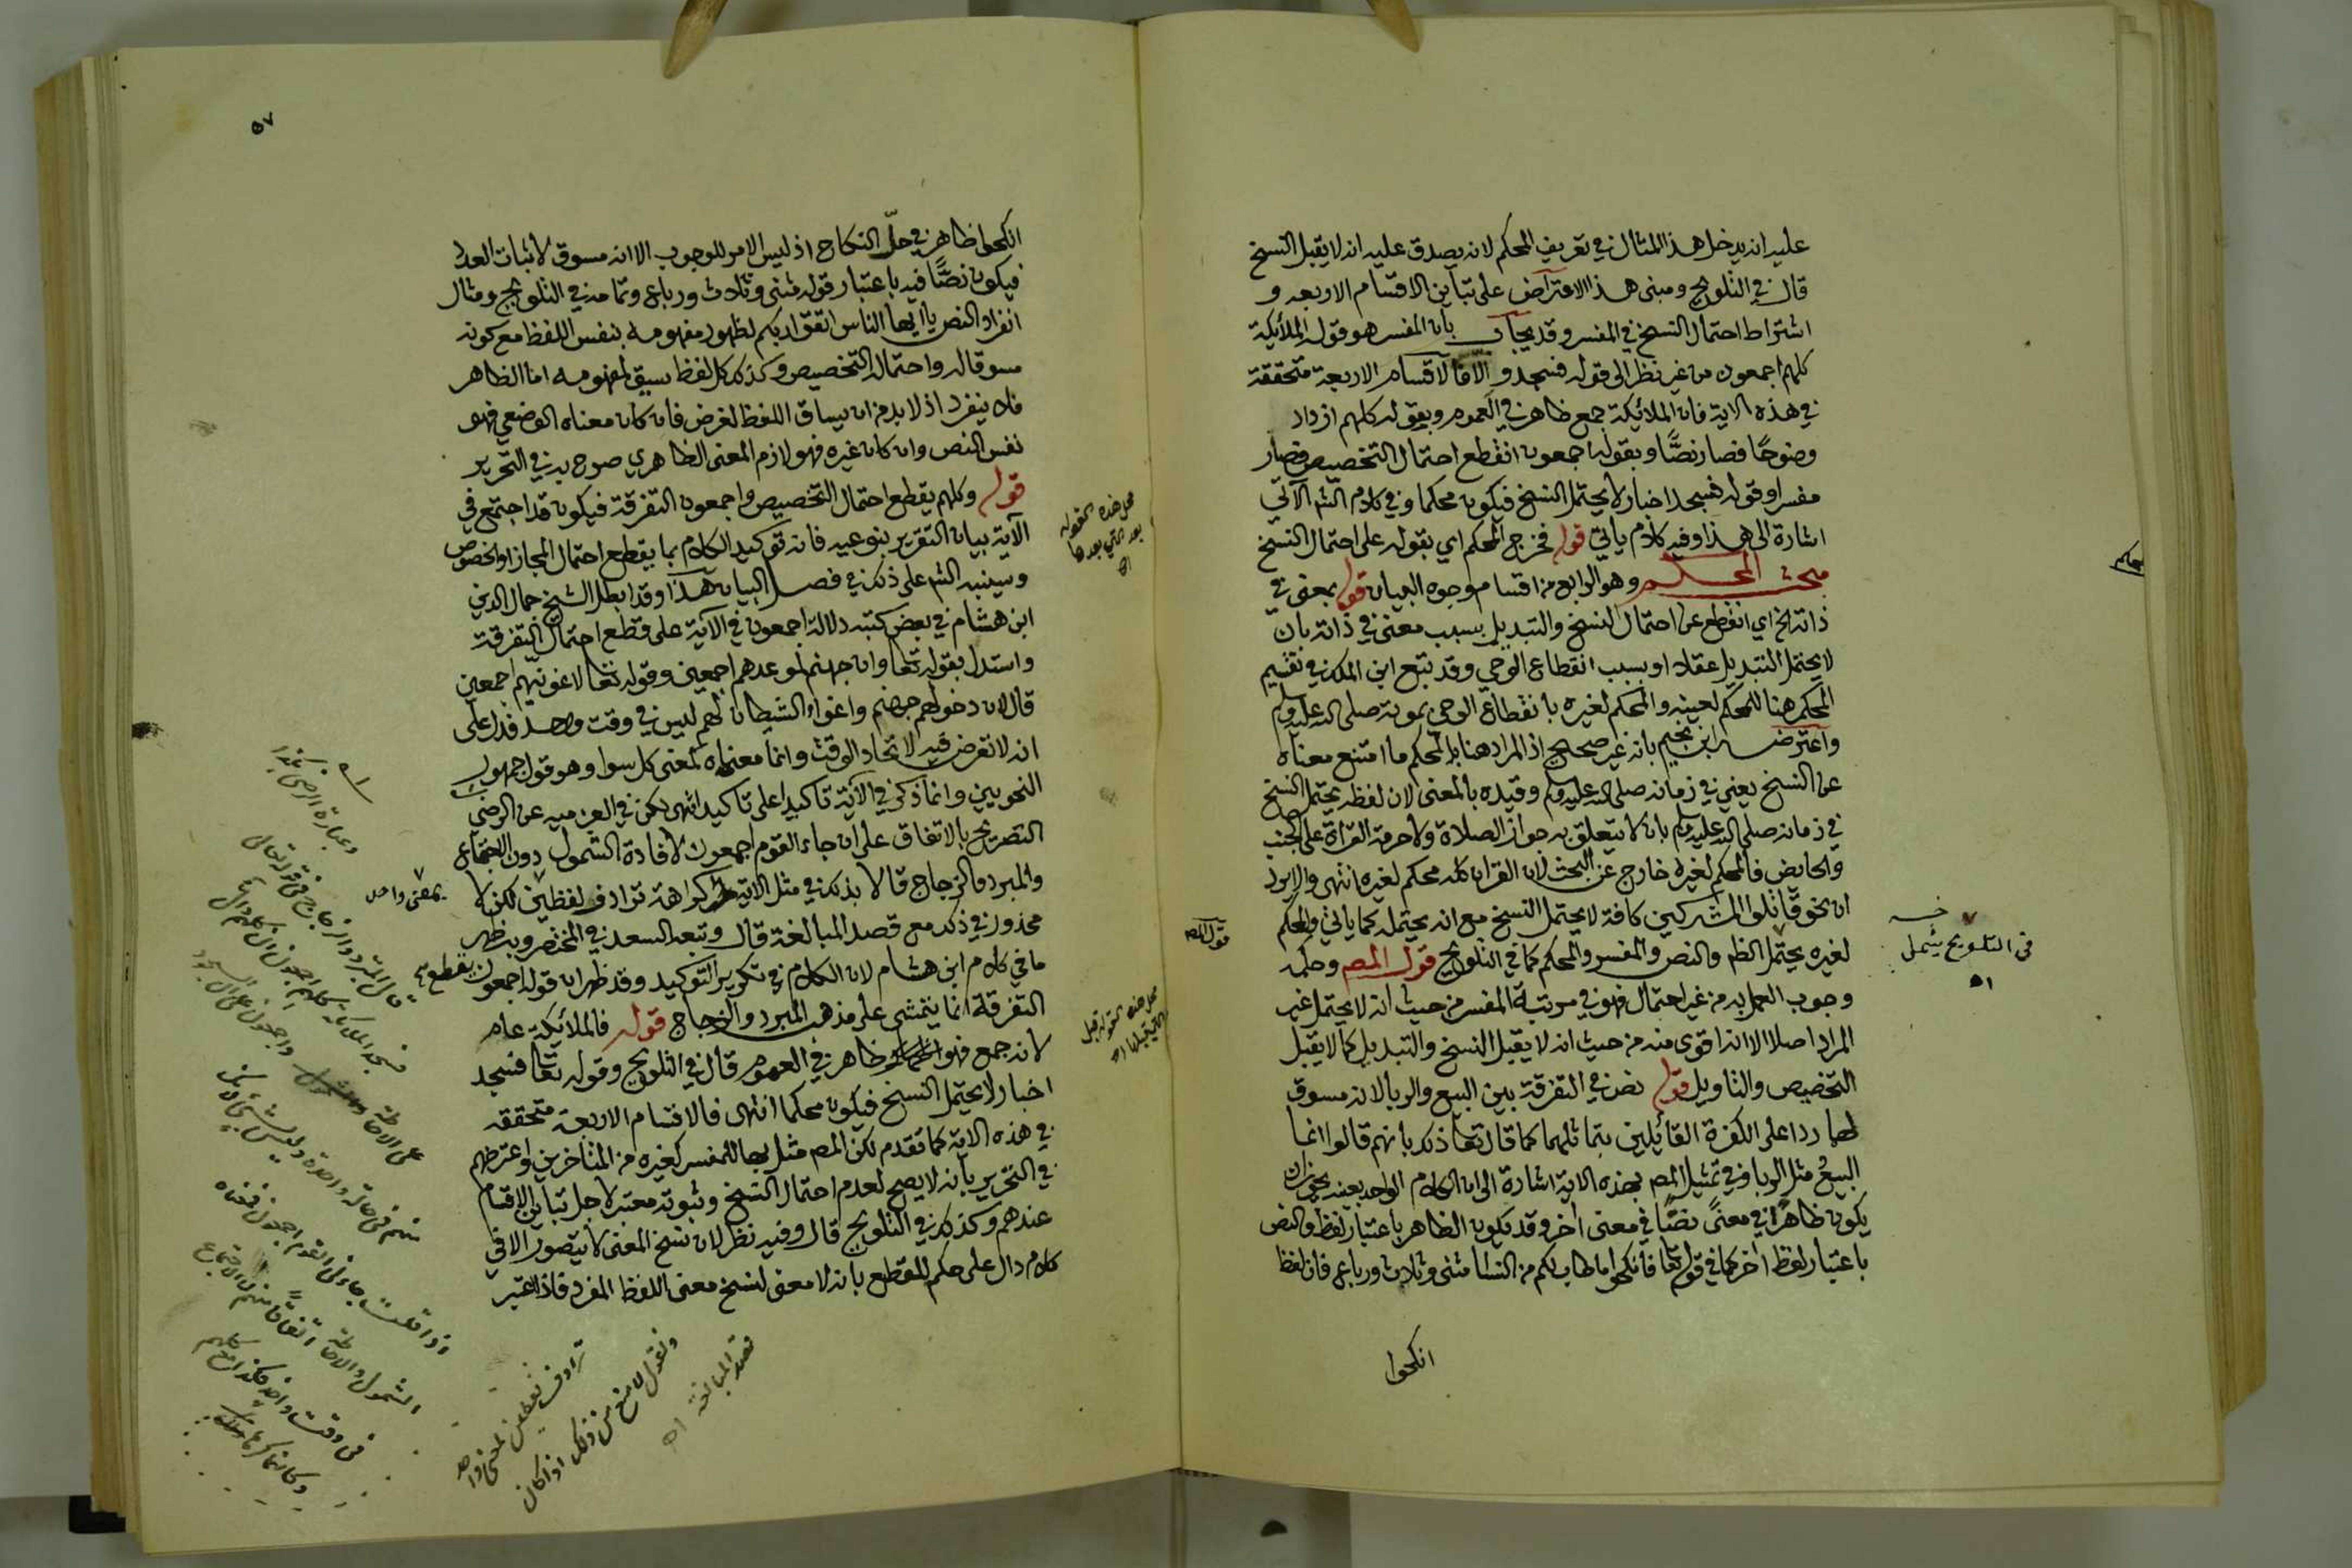 عليه انه يدخل هذا المثال في تعريف المحكم لانه يصدق عليه انه لا يقبل النسخ
قال في التلويح ومبنى هذا الاعتراض على تباين الاقسام الاربعه و
اشتراط احتمال النسخ في المفسر وقد يجاب بان المفسر هو قوله الملائكة
كلهم اجمعون من غير نظر الى قوله فسجد والا فالاقسام الاربعة متحققة
في هذه الاية فان الملائكة جمع ظاهر في العموم وبقوله كلهم ازداد
وضوحًا فصار نصًّا وبقوله اجمعون انقطع احتمال التخصيص فصار
مفسرا وقوله فسجد اخبار لا يحتمل النسخ فيكون محكما وفي كلام الش الآتي
اشارة الى هذا وفيه كلام ياتي قوله فخرج المحكم اي بقوله على احتمال النسخ
مبحث المحكم وهو الرابع من اقسام وجوه البيان قوله بمعنى في
ذاته الخ اي انقطع عن احتمال النسخ والتبديل بسبب معنى في ذاته بان
لا يحتمل التبديل عقلا او بسبب انقطاع الوحي وقد تبع ابن الملك في تقسيم
المحكم هنا للمحكم لعينه والمحكم لغيره بانقطاع الوحي بموته صلى الله عليه وسلم
واعترضه ابن نجيم بانه غير صحيح اذ المراد هنا بالمحكم ما امتنع معناه
عن النسخ يعني في زمانه صلى الله عليه وسلم وقيده بالمعنى لان لفظه يحتمل النسخ
في زمانه صلى الله عليه وسلم بان لا يتعلق به جواز الصلاة ولا حرمة القراة على الجنب
والحايض فالمحكم لغيره خارج عن البحث لان القران كله محكم لغيره انتهى والا يرد
ان نحو قاتلوا المشركين كافة لا يحتمل النسخ مع انه يحتمله كما ياتي والمحكم
لغيره يحتمل الظ والنص والمفسر والمحكم كما في التلويح قول المص وحكمه
وجوب العمل به من غير احتمال فهو في مرتبة المفسر من حيث انه لا يحتمل غير
المراد اصلا الا انه اقوى منه من حيث انه لا يقبل النسخ والتبديل كما لا يقبل
التخصيص والتاويل قوله نص في التفرقة بين البيع والربا لانه مسوق
لها ردا على الكفرة القائلين بتماثلهما كما قال تعا ذلك بانهم قالوا انما
البيعُ مثل الربا وفي تمثيل المص بهذه الاية اشارة الى ان الكلام الواحد بعينه يجوز ان
يكون ظاهرًا في معنًى نصًّا في معنى اخر وقد يكون الظاهر باعتبار لفظ والنص
باعتبار لفظ اخر كما في قوله تعا فانكحوا ما طاب لكم من النسا مثنى وثلاث ورباع فان لفظ
انكحوا
في التلويح يشمل
اه
٥٧
انكحوا ظاهر في حلّ النكاح اذ ليس الامر للوجوب الا انه مسوق لاثبات العدد
فيكون نصًّا فيه باعتبار قوله مثنى وثلاث ورباع وتمامه في التلويح ومثال
انفراد النص يا ايها الناس اتقوا ربكم لظهور مفهومه بنفس اللفظ مع كونه
مسوقا له واحتمال التخصيص وكذلك كل لفظ سيق لمفهومه اما الظاهر
فلا ينفرد اذ لا بد من ان يساق اللفظ لغرض فان كان معناه الوضعي فهو
نفس النص وان كان غيره فهو لازم المعنى الظاهري صرح به في التحرير
قوله وكلهم يقطع احتمال التخصيص واجمعون التفرقة فيكون قد اجتمع في
الآية بيان التقرير بنوعيه فانه توكيد الكلام بما يقطع احتمال المجاز او الخصوص
وسينبه الش على ذلك في فصل البيان هذا وقد ابطل الشيخ جمال الدين
ابن هشام في بعض كتبه دلالة اجمعون في الآية على قطع احتمال التفرقة
واستدل بقوله تعا وان جهنم لموعدهم اجمعين وقوله تعا لاغوينهم اجمعين
قال لان دخولهم جهنم واغواء الشيطان لهم ليس في وقت واحد فدل على
انه لا تعرض فيه لاتحاد الوقت وانما معناه لمعنى كل سوا وهو قول جمهور
النحويين وانما ذكر في الآية تاكيدا على تاكيد انتهى لكن في العزميه عن الرضي
التصريح بالاتفاق على ان جاء القوم اجمعون لافادة الشمول دون الاجتماع
والمبرد والزجاج قالا بذلك في مثل الاية كراهة ترادف لفظين لكن لا
بمعنى واحد
محذور في ذلك مع قصد المبالغة قال وتبعه السعد في المختصر وبه ظهر
ما في كلام ابن هشام لان الكلام في تكرير التوكيد وقد ظهر ان قوله اجمعون يقطع
التفرقة انما يتمشى على مذهب المبرد والزجاج قوله فالملائكة عام
لانه جمع فهو ظاهر في العموم قال في التلويح وقوله تعا فسجد
اخبار لا يحتمل النسخ فيكون محكما انتهى فالاقسام الاربعة متحققه
في هذه الاية كما تقدم لكن المص مثل بها للمفسر كغيره من المتاخرين واعترضهم
في التحرير بانه لا يصح لعدم احتمال النسخ وثبوته معتبر لاجل تباين الاقسام
عندهم وكذلك في التلويح قال وفيه نظر لان نسخ المعنى لا يتصور الا في
كلام دال على حكم للقطع بانه لا معنى لنسخ معنى اللفظ المفرد فاذا اعتبر
محل هذه القوله
بعد التي بعدها
اه
محل هذه القوله قبل
التي قبلها اه
وعبارة الرضي هكذا
قال المبرد والزجاج في قوله تعالى
فسجد الملائكة كلهم اجمعون ان كلهم دال
على الاحاطة واجمعون على ان السجود
منهم في حالة واحدة وليس بشيء لانك
اذا قلت جاءني القوم اجمعون فمعناه
الشمول والاحاطة اتفاقًا منهم لا اجتماع
في وقت واحد فكذا مع كلهم
وكانهما كرها
ترادف لفظين لمعنى واحد
ونقول لا منع من ذلك اذا كان
قصد المبالغة اه